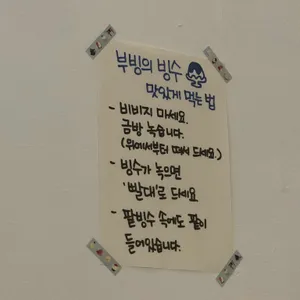 부빙의 빙수
맛있게 먹는 법
- 비비지 마세요.
금방 녹습니다.
(위에서부터 떠서 드세요.)
- 빙수가 녹으면
'빨대'로 드세요
- 팥빙수 속에도 팥이
들어있습니다.